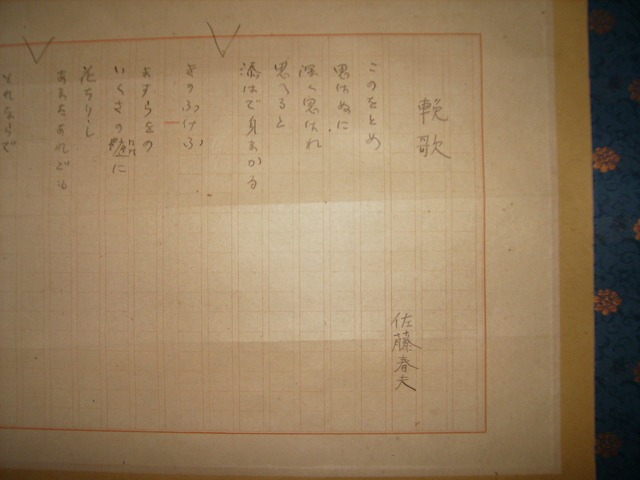 輓歌
佐藤春夫
このをとめ
思はぬに
深く思はれ
思へると
添はで身まかる
きのふけふ
ますらをの
いくさの庭に
花ちりし
あまたあれども
それならで